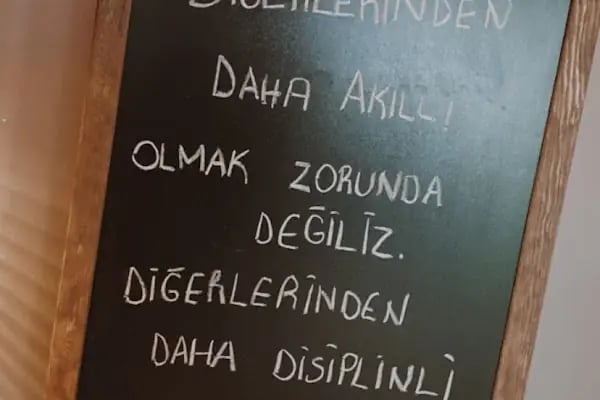 DİĞERLERİNDEN
DAHA AKILLI
OLMAK ZORUNDA
DEĞİLİZ.
DİĞERLERİNDEN
DAHA DİSİPLİNLİ